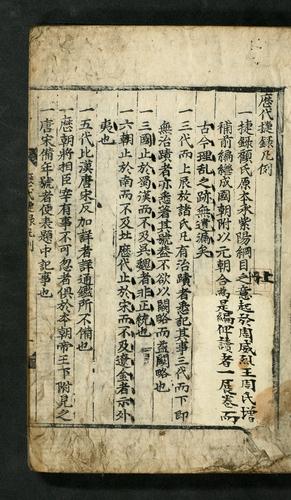 歷代捷錄凡例
一捷錄顧氏原本朱紫陽綱目之意起於周威烈王周氏增
補前編繼成國朝附以元朝合為是編俾讀者一展卷而
古今理乱之跡無遺漏矣
一三代而上辰放諸氏凡有治蹟者悉記其事三代而下即
無治蹟者亦悉著其號盖不欲以闕略而益闕略也
一三國止於蜀漢而不及吳魏者非正統也
一六朝止於南而不及北歷代止於宋而不及遼金者示外
夷也
一五代比漢唐宋反加詳者詳通鑑所不備也
一歷朝將相臣宰有事不可忽者俱於本朝帝王下附見之
一唐宋備年號者便表題中記事也